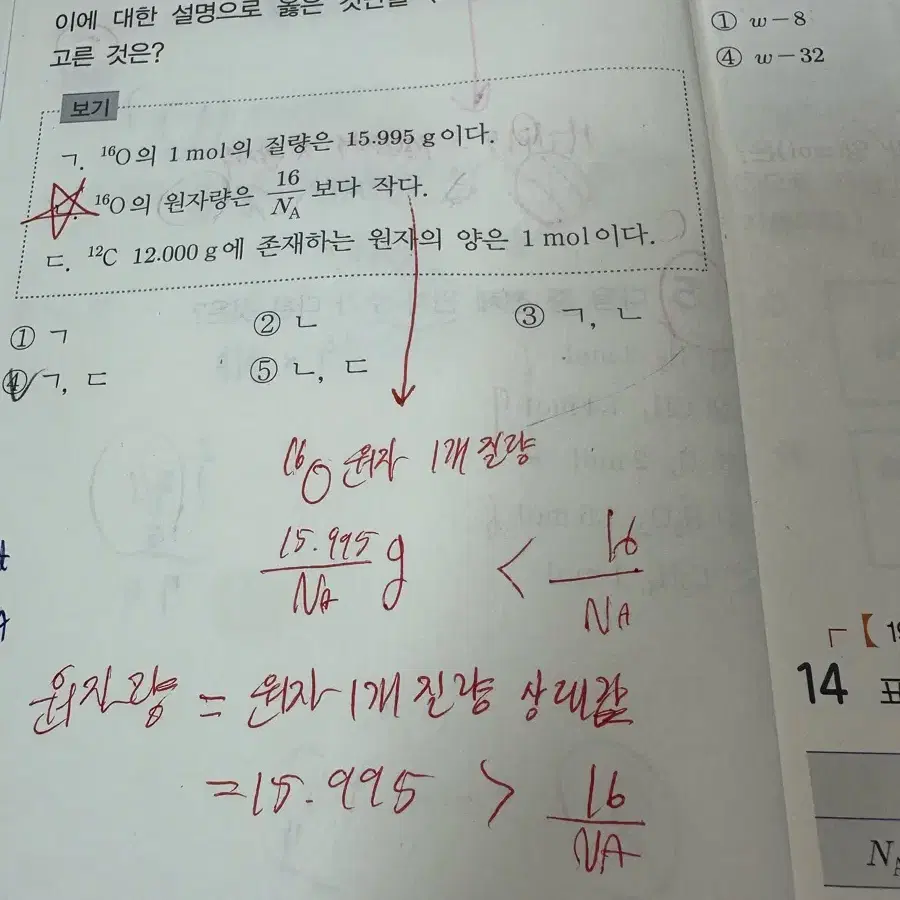 이에 대한 설명으로 옳은
고른 것은?
보기
ㄱ. ¹⁶O의 1 mol의 질량은 15.995 g이다.
ㄴ. ¹⁶O의 원자량은 16/N_A 보다 작다.
ㄷ. ¹²C 12.000 g에 존재하는 원자의 양은 1 mol이다.
① ㄱ ② ㄴ ③ ㄱ, ㄴ
④ ㄱ, ㄷ ⑤ ㄴ, ㄷ
¹⁶O 원자 1개 질량
15.995/NA g < 16/NA
원자량 = 원자 1개 질량 상대값
=15.995 > 16/NA
① w-8
④ w-32
14
N_A